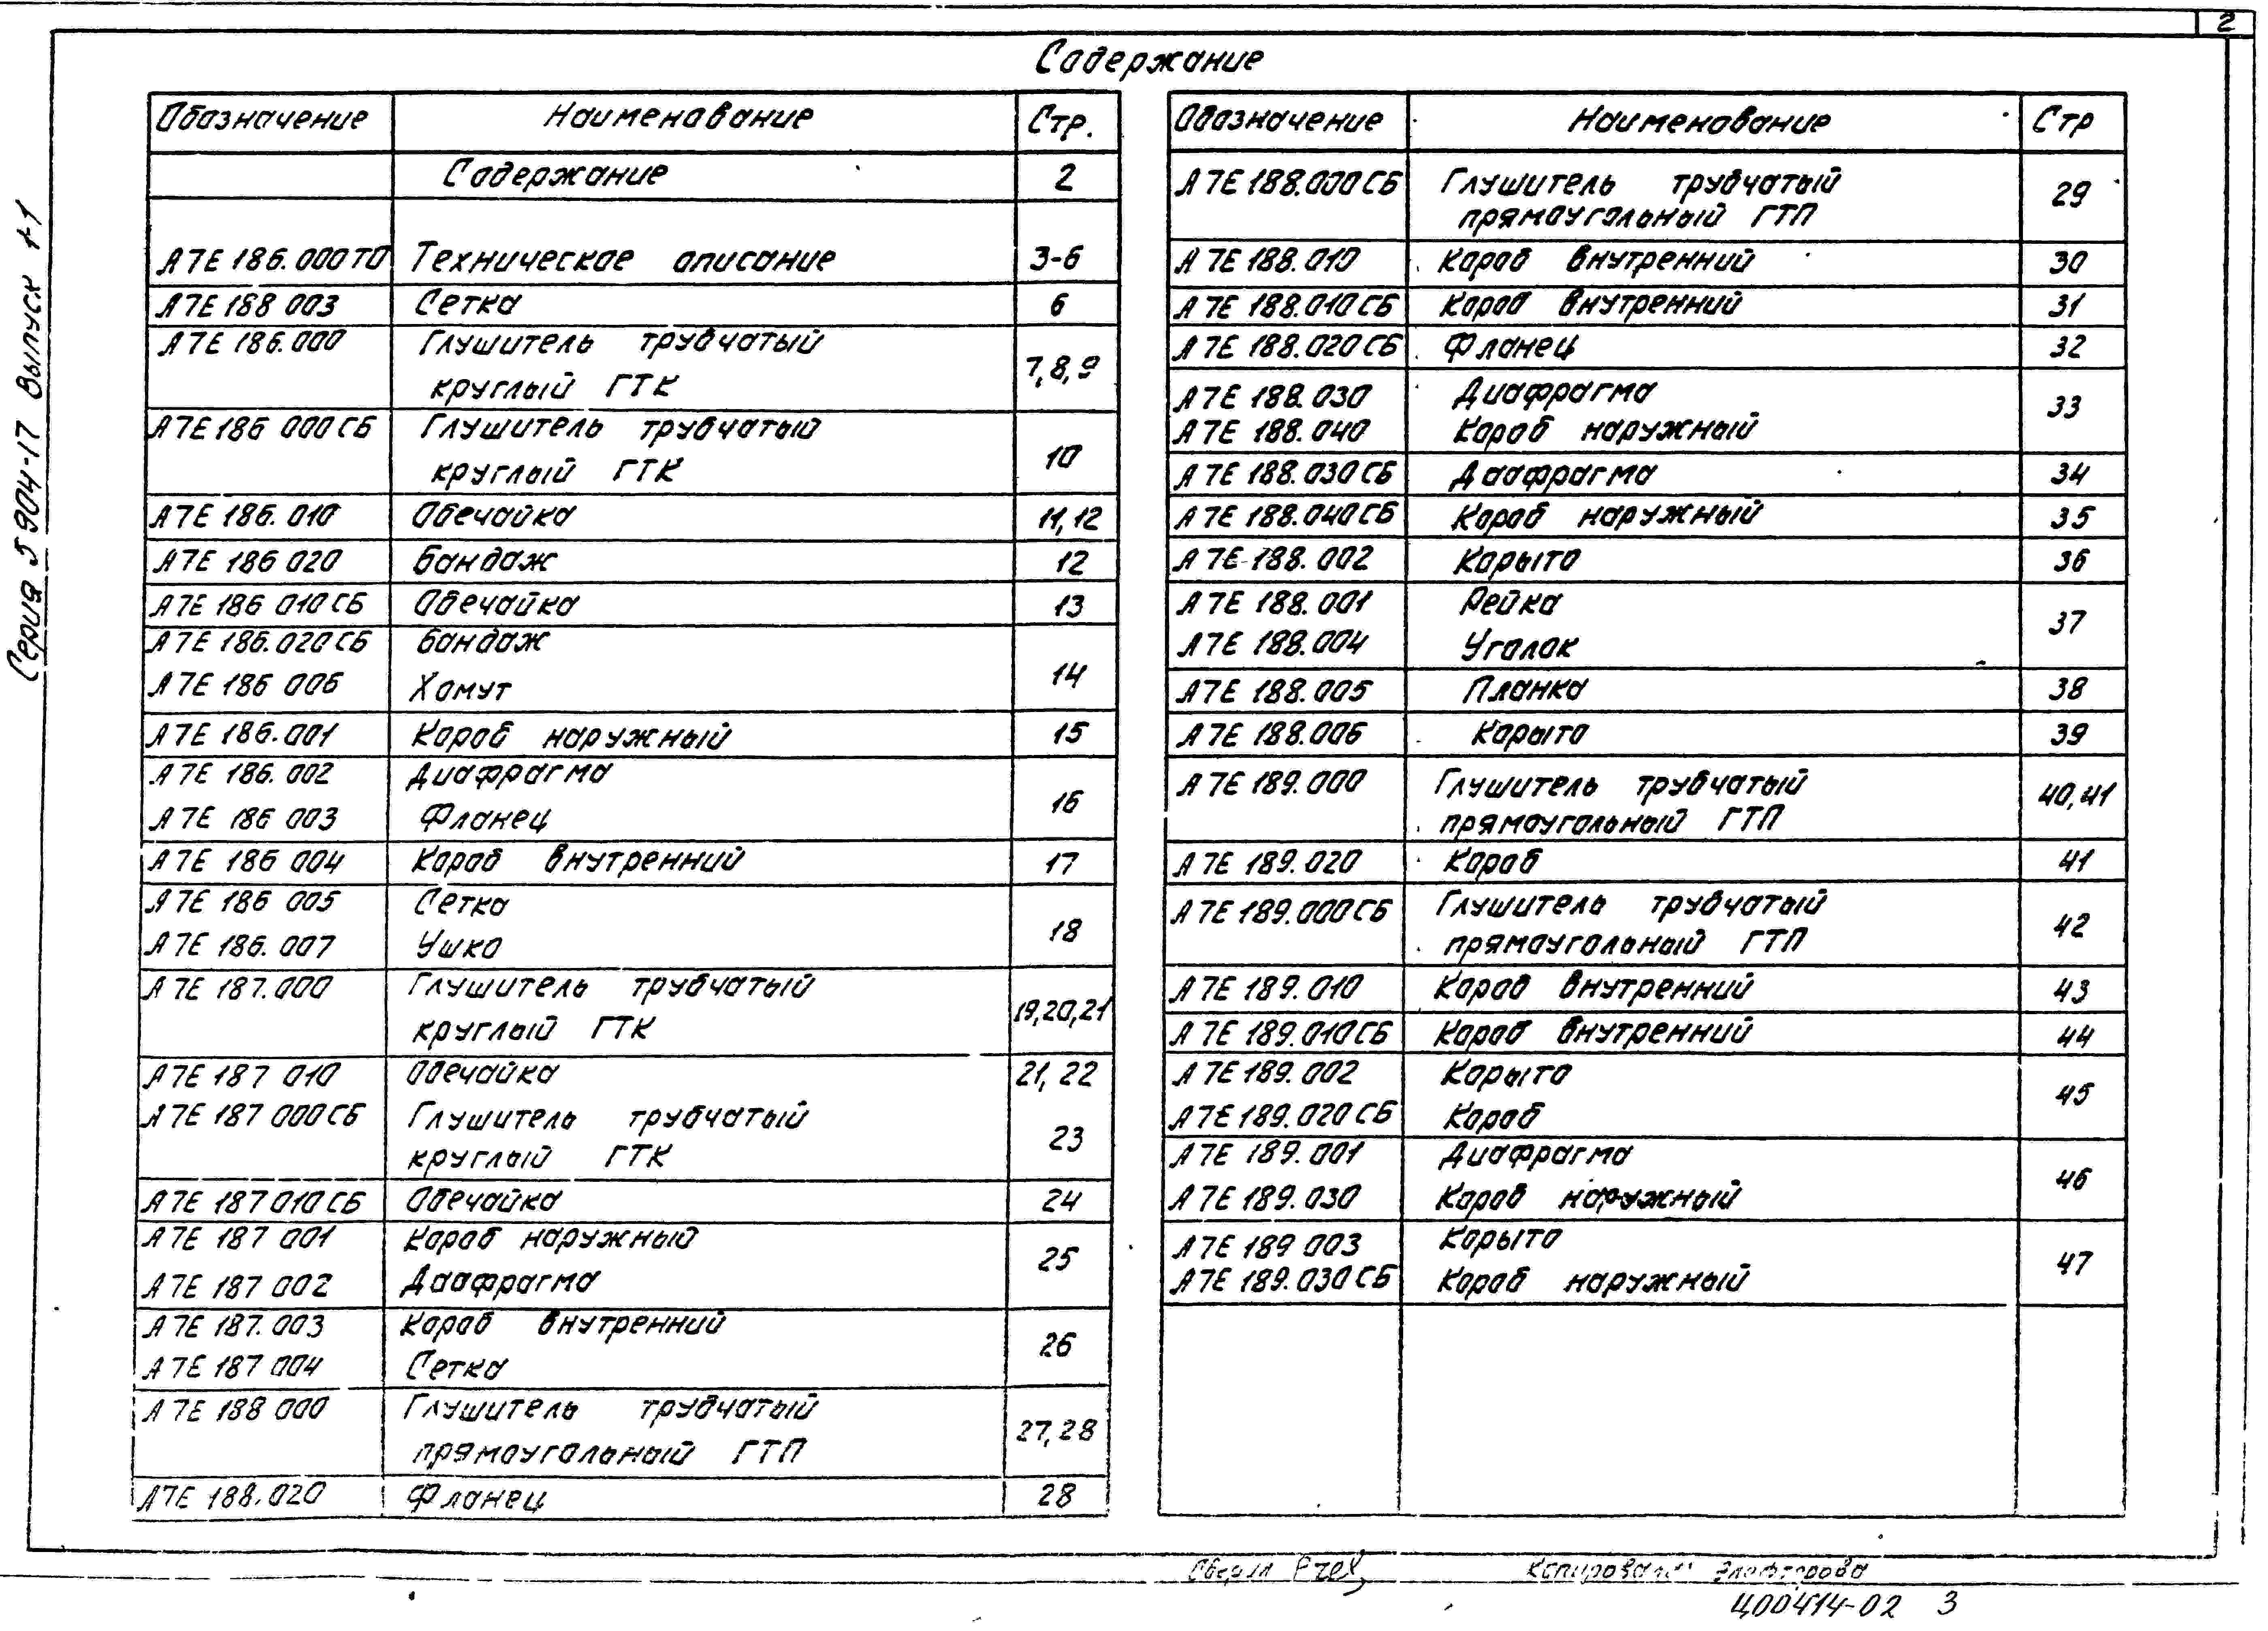 2
Содержание
Серия 5 904-17 Выпуск 1-1
Обозначение Наименование Стр.
Содержание 2
А7Е 186.000ТО Техническое описание 3-6
А7Е 188 003 Сетка 6
А7Е 186.000 Глушитель трубчатый
круглый ГТК 7,8,9
А7Е 186 000СБ Глушитель трубчатый
круглый ГТК 10
А7Е 186.010 Обечайка 11,12
А7Е 186 020 Бандаж 12
А7Е 186 010СБ Обечайка 13
А7Е 186.020СБ Бандаж
А7Е 186 006 Хомут 14
А7Е 186.001 Короб наружный 15
А7Е 186.002 Диафрагма
А7Е 186 003 Фланец 16
А7Е 186 004 Короб внутренний 17
А7Е 186 005 Сетка
А7Е 186.007 Ушко 18
А7Е 187.000 Глушитель трубчатый
круглый ГТК 19,20,21
А7Е 187 010 Обечайка 21,22
А7Е 187 000СБ Глушитель трубчатый
круглый ГТК 23
А7Е 187 010СБ Обечайка 24
А7Е 187 001 Короб наружный
А7Е 187 002 Диафрагма 25
А7Е 187.003 Короб внутренний
А7Е 187 004 Сетка 26
А7Е 188 000 Глушитель трубчатый
прямоугольный ГТП 27,28
А7Е 188.020 Фланец 28
Обозначение Наименование Стр
А7Е 188.000СБ Глушитель трубчатый
прямоугольный ГТП 29
А7Е 188.010 Короб внутренний 30
А7Е 188.010СБ Короб внутренний 31
А7Е 188.020СБ Фланец 32
А7Е 188.030 Диафрагма
А7Е 188.040 Короб наружный 33
А7Е 188.030СБ Диафрагма 34
А7Е 188.040СБ Короб наружный 35
А7Е 188.002 Корыто 36
А7Е 188.001 Рейка
А7Е 188.004 Уголок 37
А7Е 188.005 Планка 38
А7Е 188.006 Корыто 39
А7Е 189.000 Глушитель трубчатый
прямоугольный ГТП 40,41
А7Е 189.020 Короб 41
А7Е 189.000СБ Глушитель трубчатый
прямоугольный ГТП 42
А7Е 189.010 Короб внутренний 43
А7Е 189.010СБ Короб внутренний 44
А7Е 189.002 Корыто
А7Е 189.020СБ Короб 45
А7Е 189.001 Диафрагма
А7Е 189.030 Короб наружный 46
А7Е 189 003 Корыто
А7Е 189.030СБ Короб наружный 47
Копировала:
Ц00414-02 3